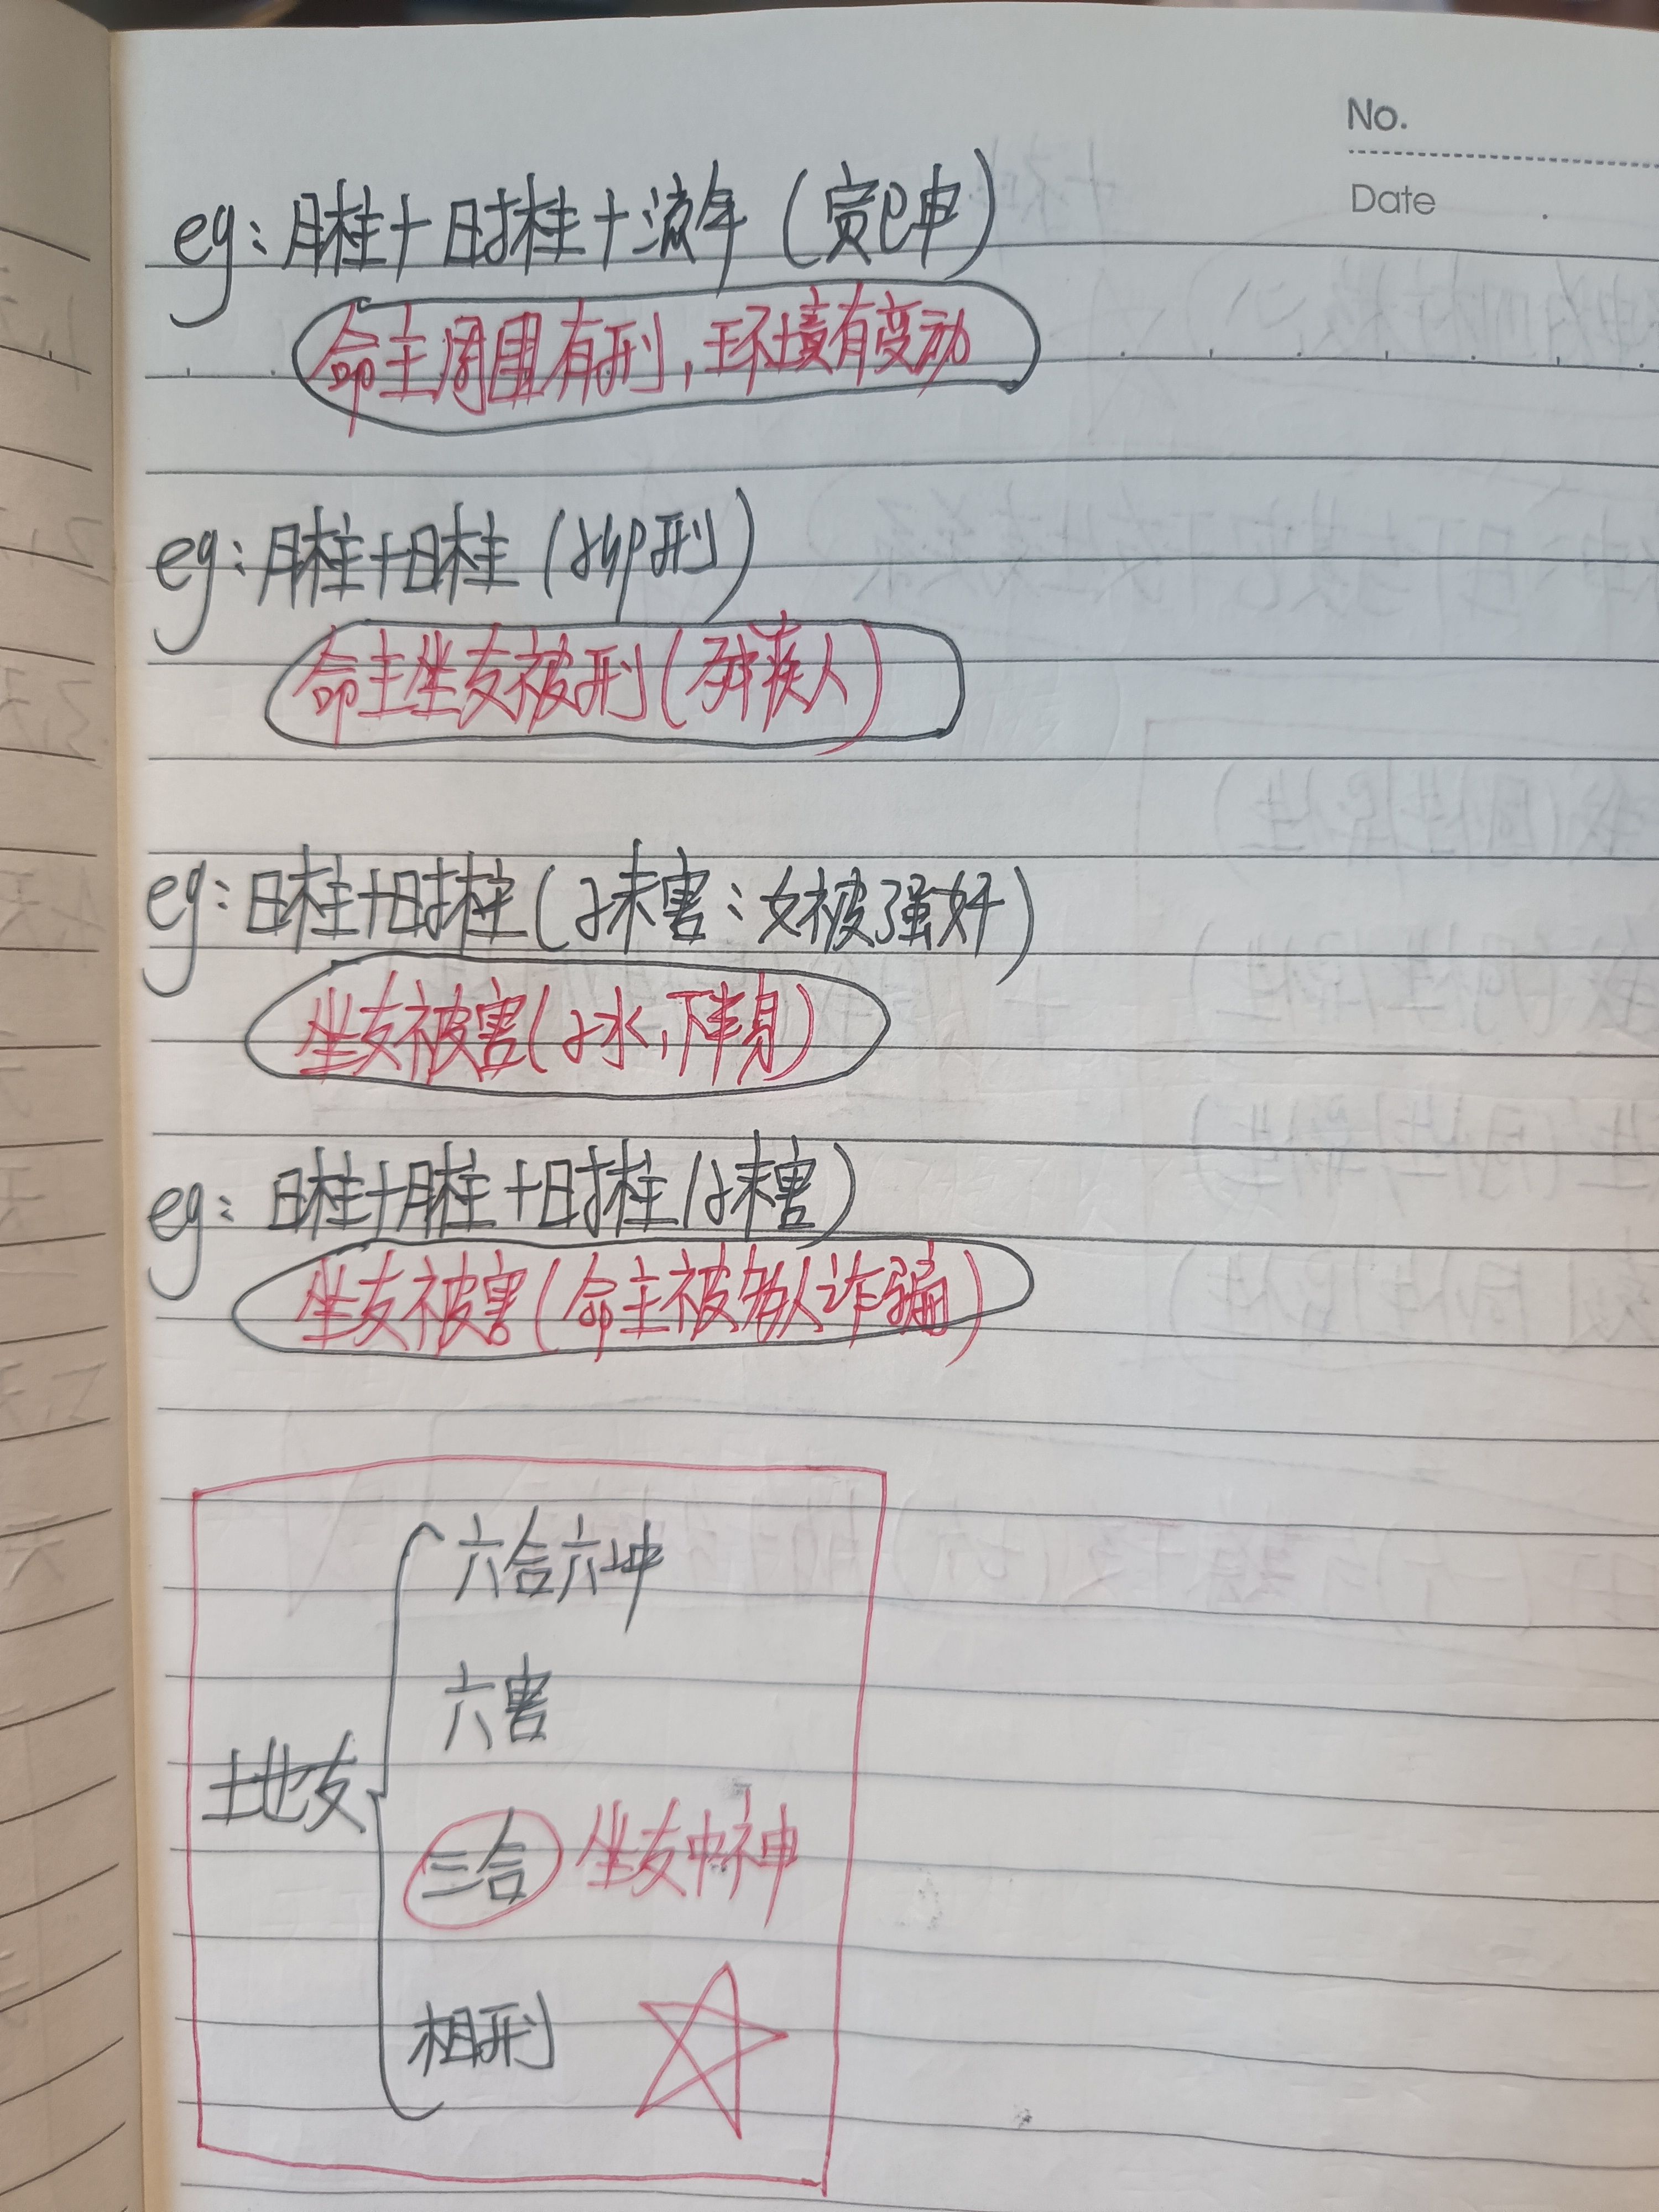 No.
Date
eg：月柱+时柱+流年（寅巳申）
命主周围有刑，环境有变动
eg：月柱+日柱（子卯刑）
命主坐支被刑（残疾人）
eg：日柱+时柱（子未害：女被强奸）
坐支被害（子水，下半身）
eg：日柱+月柱+时柱（子未害）
坐支被害（命主被多人诈骗）
六合六冲
六害
地支
三合 坐支中神
相刑